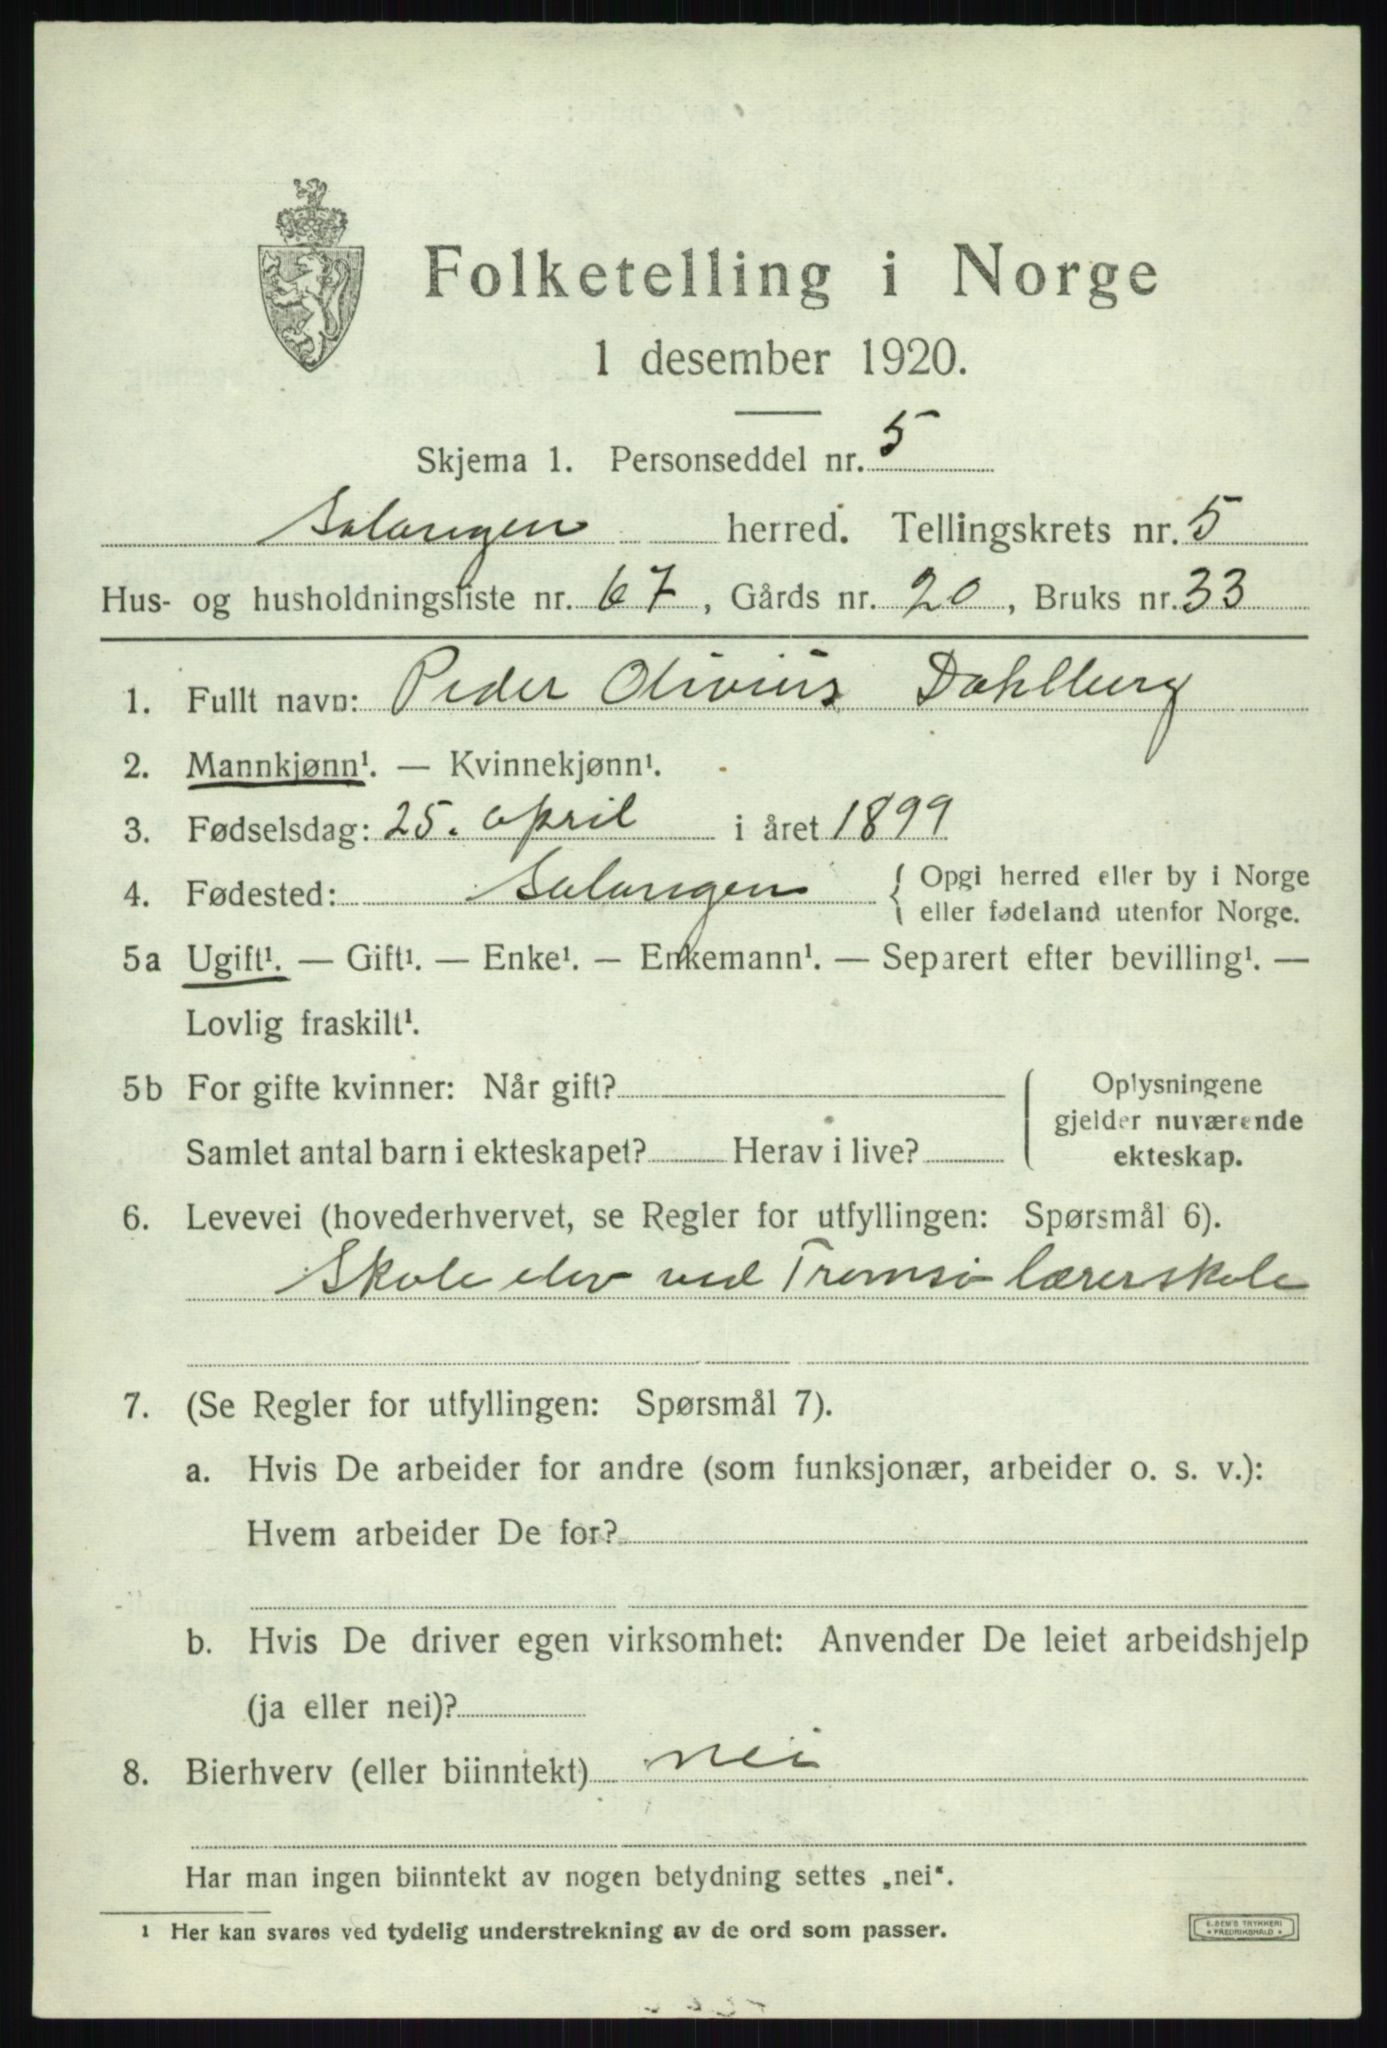 Folketelling i Norge
1 desember 1920.
Skjema 1. Personseddel nr. 5
Salangen herred. Tellingskrets nr. 5
Hus- og husholdningsliste nr. 67, Gårds nr. 20, Bruks nr. 33
1. Fullt navn: Peder Olivius Dahlberg
2. Mannkjønn¹. — Kvinnekjønn¹.
3. Fødselsdag: 25. april i året 1899
4. Fødested: Salangen { Opgi herred eller by i Norge
eller fødeland utenfor Norge.
5a Ugift¹. — Gift¹. — Enke¹. — Enkemann¹. — Separert efter bevilling¹. —
Lovlig fraskilt¹.
5b For gifte kvinner: Når gift? Oplysningene
gjelder nuværende
Samlet antal barn i ekteskapet? Herav i live? ekteskap.
6. Levevei (hovederhvervet, se Regler for utfyllingen: Spørsmål 6).
Skole elev ved Tromsø lærerskole
7. (Se Regler for utfyllingen: Spørsmål 7).
a. Hvis De arbeider for andre (som funksjonær, arbeider o. s. v.):
Hvem arbeider De for?
b. Hvis De driver egen virksomhet: Anvender De leiet arbeidshjelp
(ja eller nei)?
8. Bierhverv (eller biinntekt) nei
Har man ingen biinntekt av nogen betydning settes „nei“.
¹ Her kan svares ved tydelig understrekning av de ord som passer.
E. SEM'S TRYKKERI
* FREDRIKSHALD *